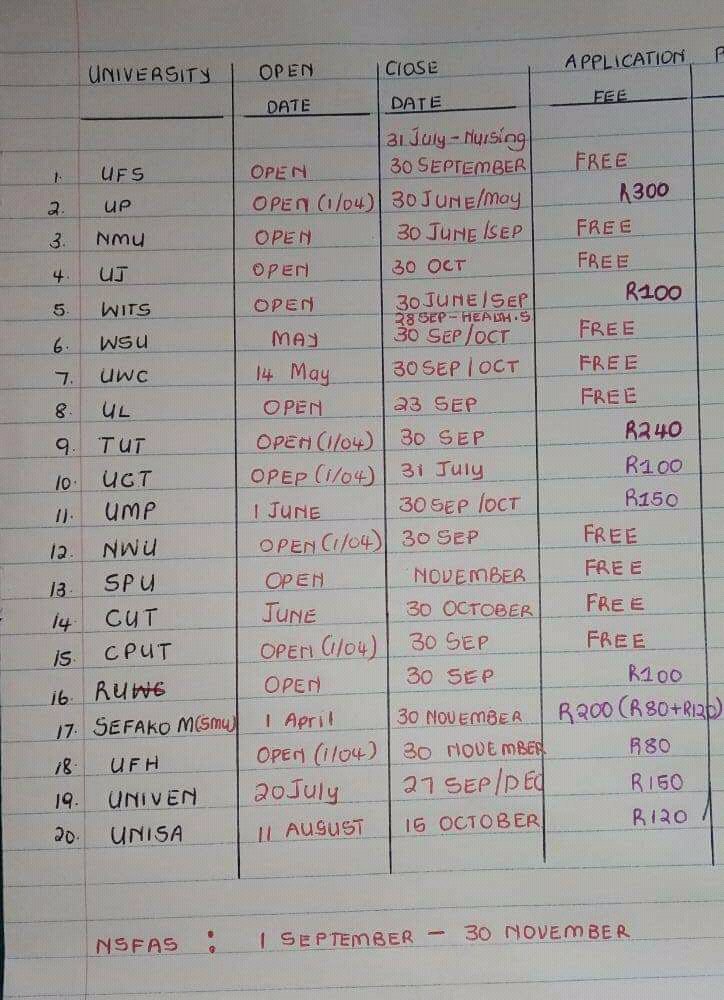 UNIVERSITY OPEN DATE CLOSE DATE APPLICATION FEE
31 July - Nursing
1. UFS OPEN 30 SEPTEMBER FREE
2. UP OPEN (1/04) 30 JUNE/May R300
3. NMU OPEN 30 JUNE/SEP FREE
4. UJ OPEN 30 OCT FREE
5. WITS OPEN 30 JUNE/SEP R100
28 SEP - HEALTH.S
6. WSU MAY 30 SEP/OCT FREE
7. UWC 14 May 30 SEP/OCT FREE
8. UL OPEN 23 SEP FREE
9. TUT OPEN (1/04) 30 SEP R240
10. UCT OPEP (1/04) 31 July R100
11. UMP 1 JUNE 30 SEP/OCT R150
12. NWU OPEN (1/04) 30 SEP FREE
13. SPU OPEN NOVEMBER FREE
14. CUT JUNE 30 OCTOBER FREE
15. CPUT OPEN (1/04) 30 SEP FREE
16. RU OPEN 30 SEP R100
17. SEFAKO M(SMU) 1 April 30 NOVEMBER R200 (R80+R120)
18. UFH OPEN (1/04) 30 NOVEMBER R80
19. UNIVEN 20 July 27 SEP/DEC R150
20. UNISA 11 AUGUST 15 OCTOBER R120
NSFAS : 1 SEPTEMBER - 30 NOVEMBER